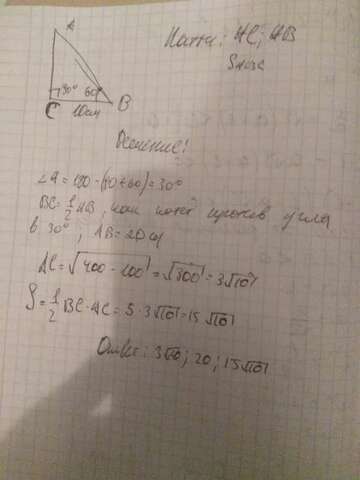 A
Найти: AC; AB
S ABC
90° 60°
C 10 см B
Решение:
∠A = 180 - (90+60) = 30°
BC = 1/2 AB, как катет против угла
в 30°, AB = 20 см
AC = √400 - 100 = √300 = 3√10
S = 1/2 BC · AC = 5 · 3√10 = 15√10
Ответ: 3√10; 20; 15√10